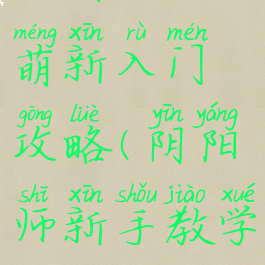 méng xīn rù mén
萌新入门
gōng lüè yīn yáng
攻略(阴阳
shī xīn shǒu jiào xué
师新手教学